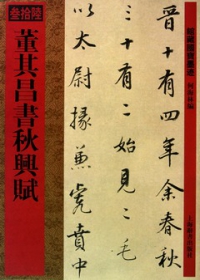 叁拾陸
董其昌書秋興賦
館藏國寶墨迹
晉十有四年余春秋
三十有二始見二毛
以太尉掾兼虎賁中
上海辭書出版社